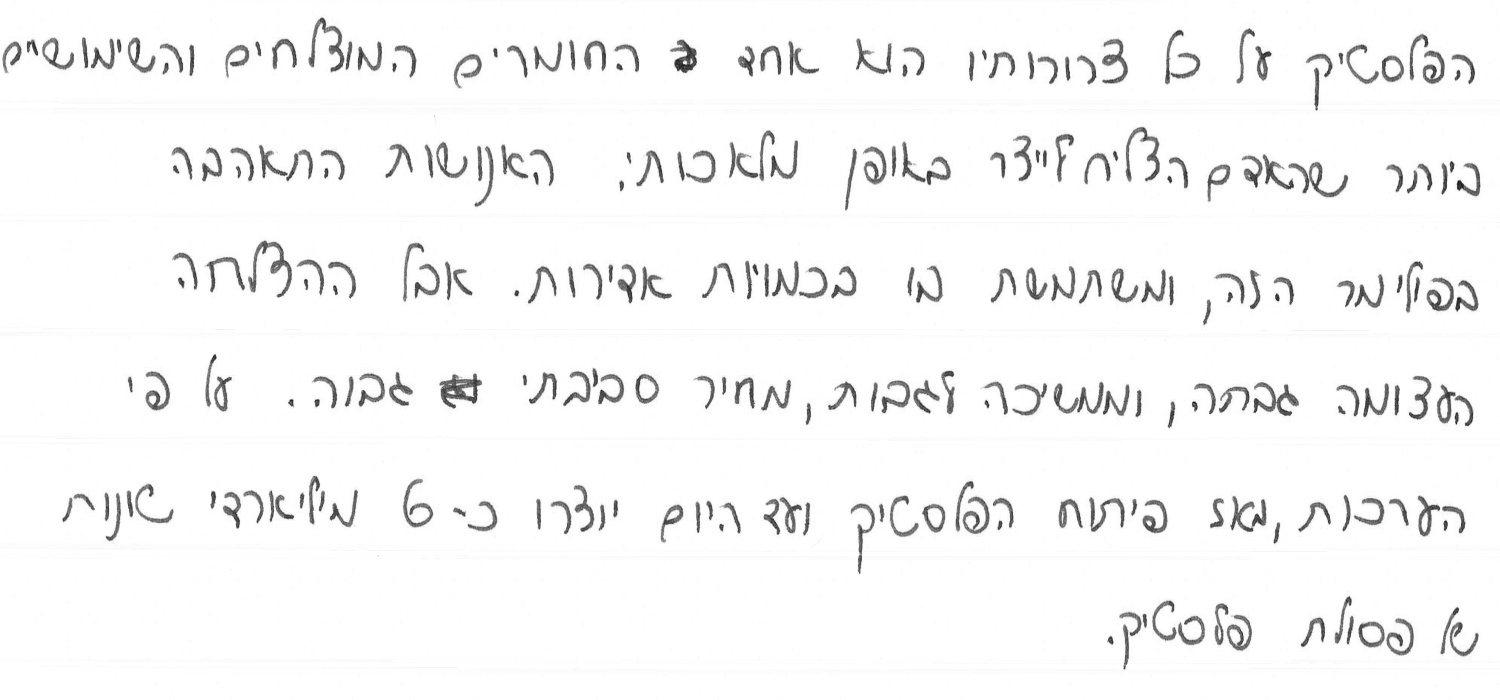 הפלסטיק על כל צרורותיו הוא אחד החומרים המוצלחים והשימושיים
ביותר שהאדם הצליח לייצר באופן מלאכותי. האנושות התאהבה
בפולימר הזה, ומשתמשת בו בכמויות אדירות. אבל ההצלחה
העצומה גבתה, וממשיכה לגבות, מחיר סביבתי גבוה. על פי
הערכות, מאז פיתוח הפלסטיק ועד היום יוצרו כ-6 מיליארדי טונות
של פסולת פלסטיק.